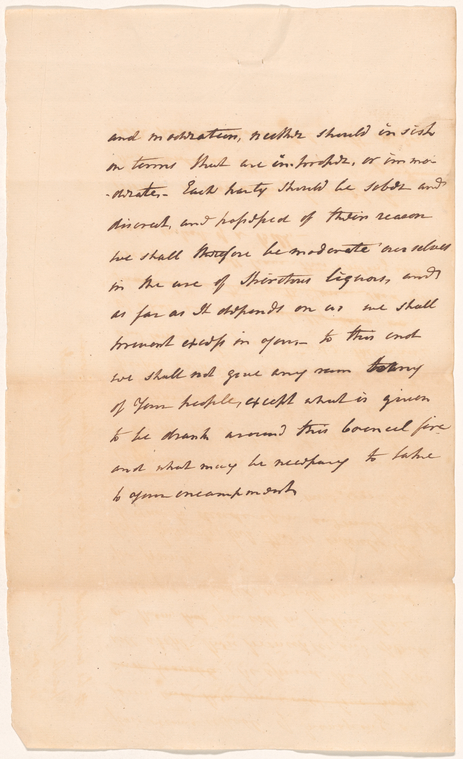 and moderation, neither should insist
on terms that are improper, or immo-
-derate,- Each party Should be sober and
discreet, and possessed of their reason
we shall therefore be moderate ourselves
in the use of Spiritous liquors, and
as far as It depends on us we shall
prevent excess in you,- to this end
we shall not give any rum to any
of Your people, except what is given
to be drank around this Council fire
and what may be necessary to take
to your encampments